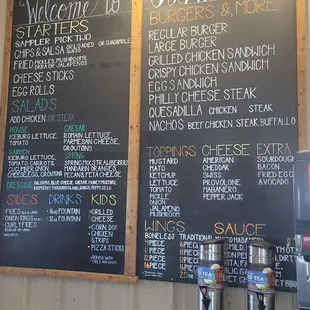 Welcome To
STARTERS
SAMPLER PICK TWO
CHIPS & SALSA
FRIED PICKLES MUSHROOMS
JALAPENOS
CHEESE STICKS
EGG ROLLS
SALADS
ADD CHICKEN OR STEAK
HOUSE
ICEBURG LETTUCE,
TOMATO
CAESAR
ROMAIN LETTUCE
PARMESAN CHEESE
CROUTONS
GARDEN
ICEBURG LETTUCE,
TOMATO, CARROTS
SPRING
SPRING MIX, STRAWBERRIES
MANDARIN ORANGES
PECANS FETA CHEESE
DRESSING
SIDES
FRIES
ONION RINGS
CURLY FRIES
DRINKS
FOUNTAIN
FOUNTAIN
KIDS
GRILLED
CHEESE
CORN DOG
CHICKEN
STRIPS
PIZZA STICKS
BURGERS & MORE
REGULAR BURGER
LARGE BURGER
GRILLED CHICKEN SANDWICH
CRISPY CHICKEN SANDWICH
EGG SANDWICH
PHILLY CHEESE STEAK
QUESADILLA CHICKEN STEAK
NACHOS BEEF, CHICKEN, STEAK, BUFFALO
TOPPINGS
MUSTARD
MAYO
KETCHUP
LETTUCE
TOMATO
PICKLE
ONION
JALAPENO
MUSHROOM
CHEESE
AMERICAN
CHEDDAR
SWISS
PROVOLONE
HABANERO
PEPPER JACK
EXTRA
SOURDOUGH
BACON
FRIED EGG
AVOCADO
WINGS
BONELESS TRADITIONAL
PIECE
PIECE
PIECE
PIECE
SAUCE
TEA
TEA